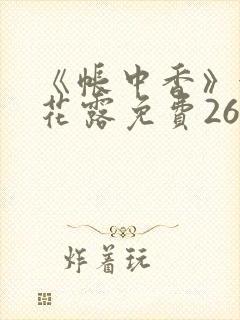 《帐中香》
花露免費26
炸着玩